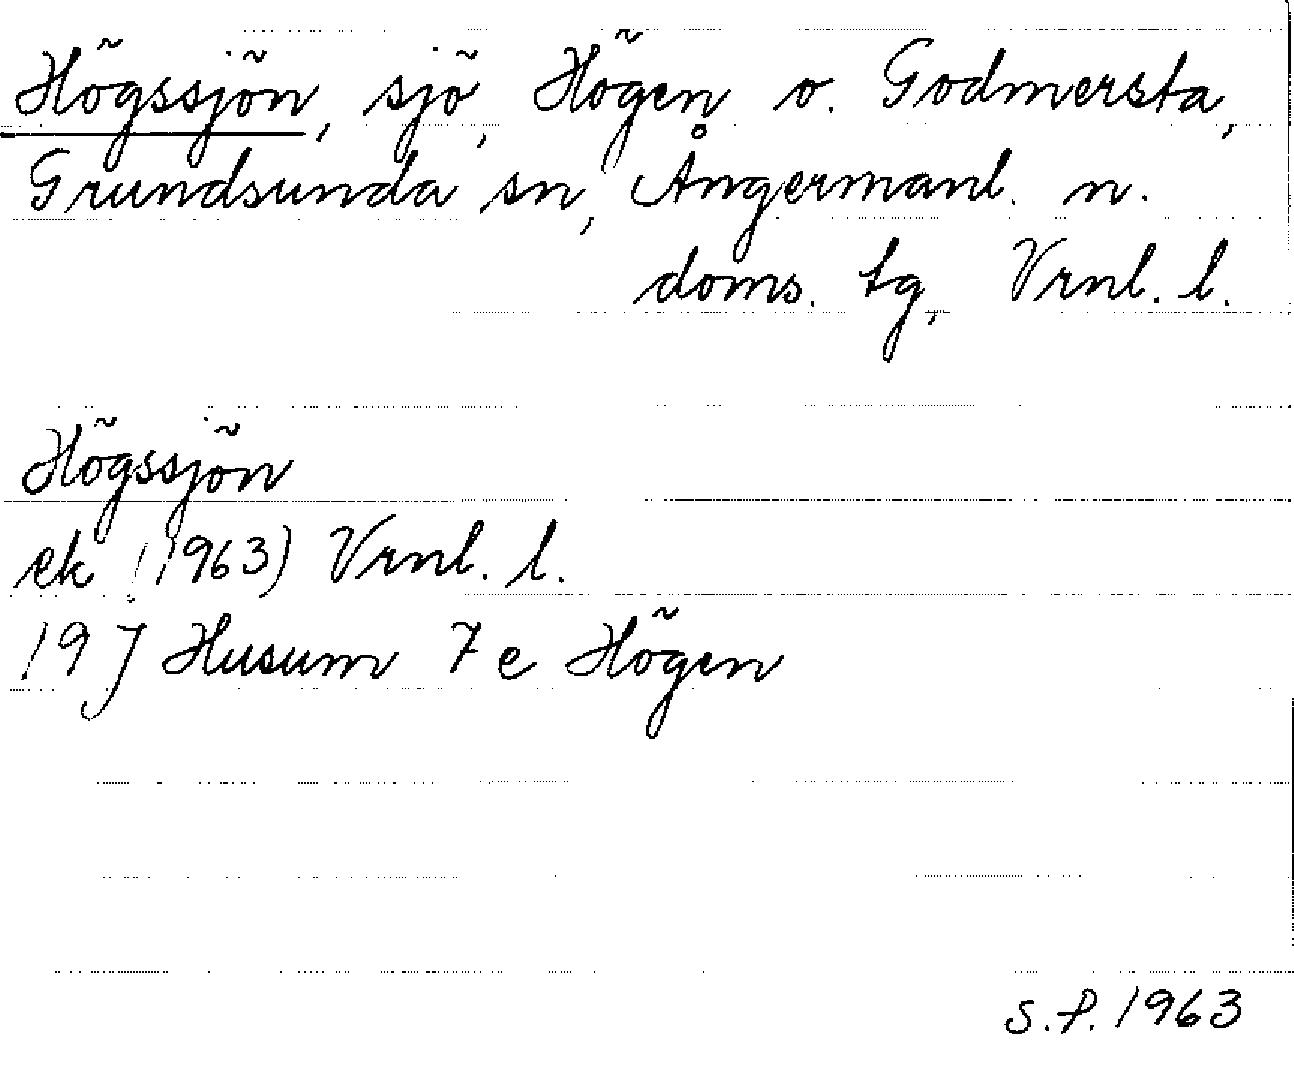 Högssjön, sjö, Högen o. Godmersta,
Grundsunda sn, Ångermanl. n.
doms. tg, Vrnl. l.
Högssjön
ek (1963) Vrnl. l.
19 J Husum 7 e Högen
S.P. 1963